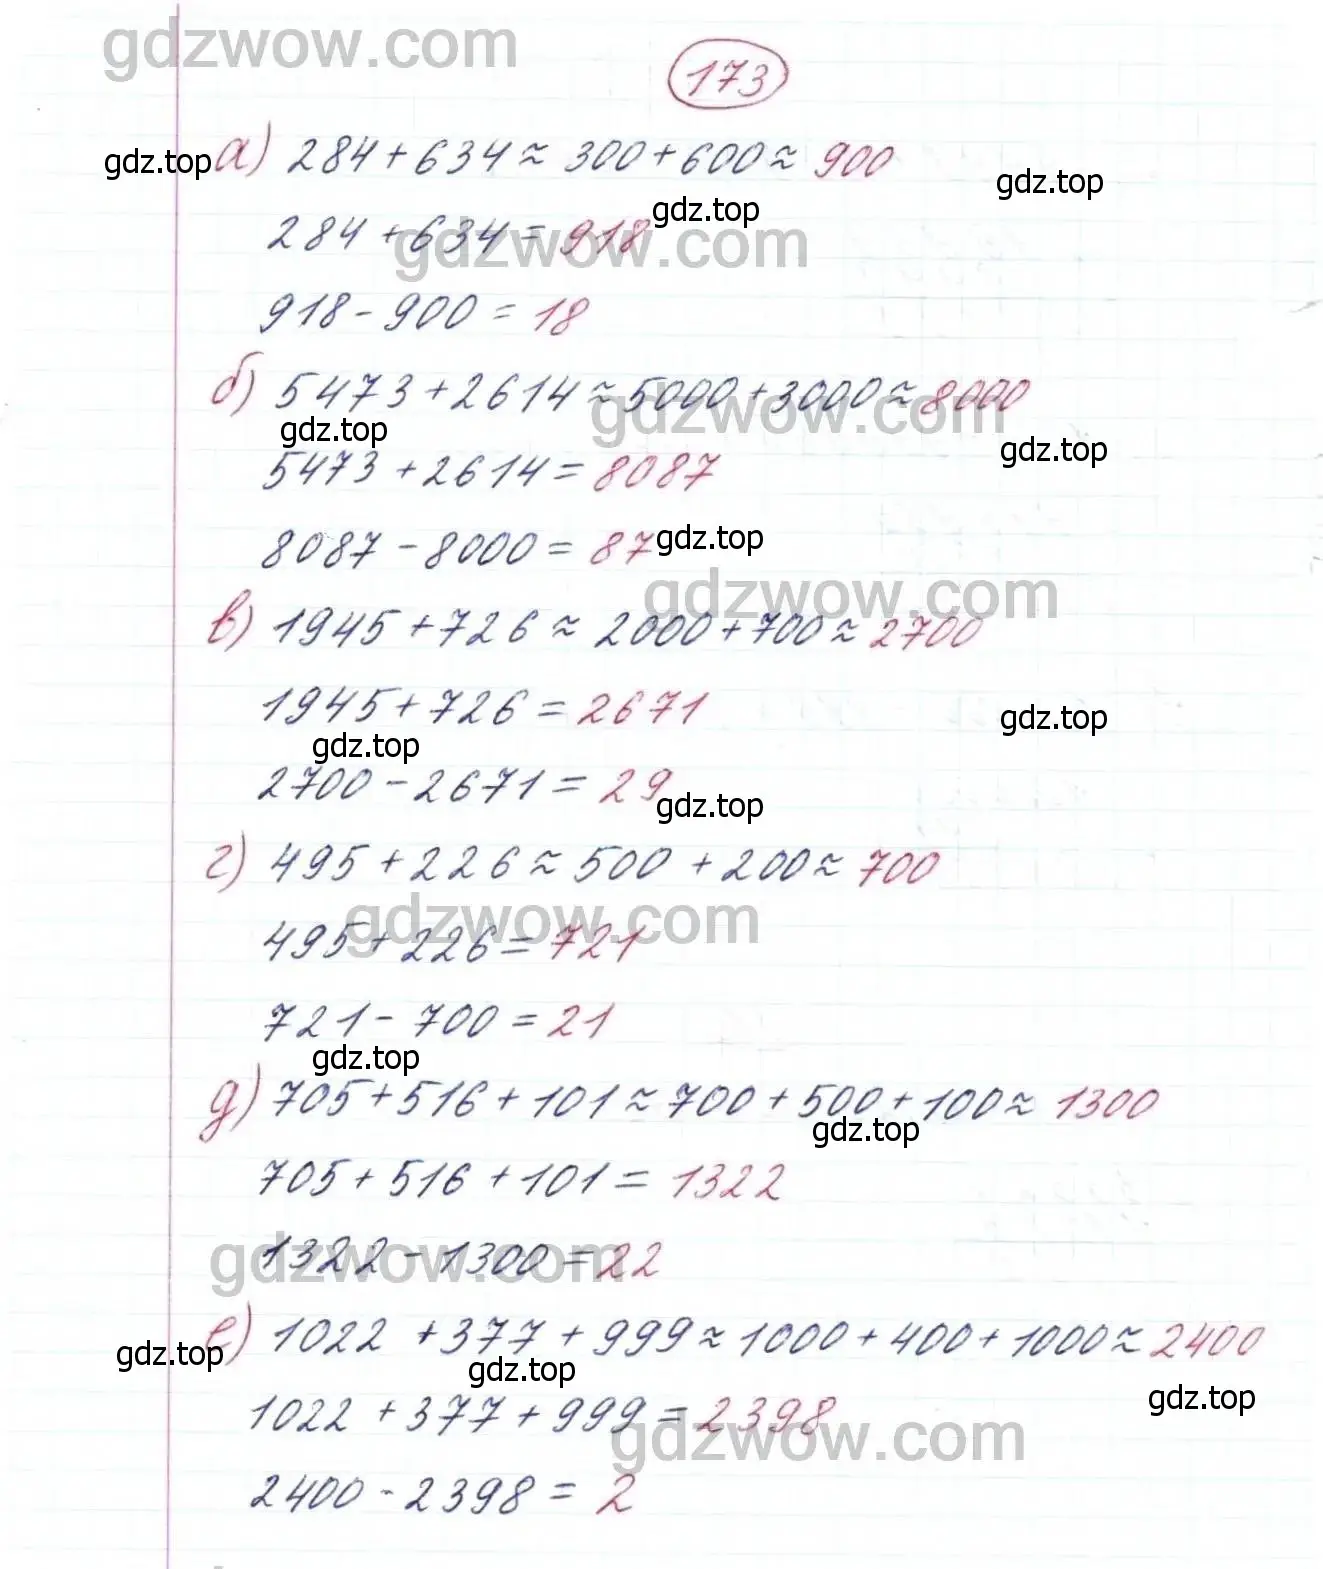 gdzwow.com
173
gdz.top
а) 284 + 634 ≈ 300 + 600 ≈ 900
gdz.top
gdz.top
284 + 634 = 918
gdzwow.com
918 - 900 = 18
б) 5473 + 2614 ≈ 5000 + 3000 ≈ 8000
gdzwow.com
gdz.top
gdz.top
5473 + 2614 = 8087
8087 - 8000 = 87
gdz.top
gdzwow.com
в) 1945 + 726 ≈ 2000 + 700 ≈ 2700
1945 + 726 = 2671
gdz.top
gdz.top
2700 - 2671 = 29
gdz.top
г) 495 + 226 ≈ 500 + 200 ≈ 700
gdzwow.com
495 + 226 = 721
721 - 700 = 21
gdz.top
д) 705 + 516 + 101 ≈ 700 + 500 + 100 ≈ 1300
gdz.top
705 + 516 + 101 = 1322
gdzwow.com
1322 - 1300 = 22
е) 1022 + 377 + 999 ≈ 1000 + 400 + 1000 ≈ 2400
gdz.top
gdz.top
gdz.top
1022 + 377 + 999 = 2398
gdzwow.com
2400 - 2398 = 2